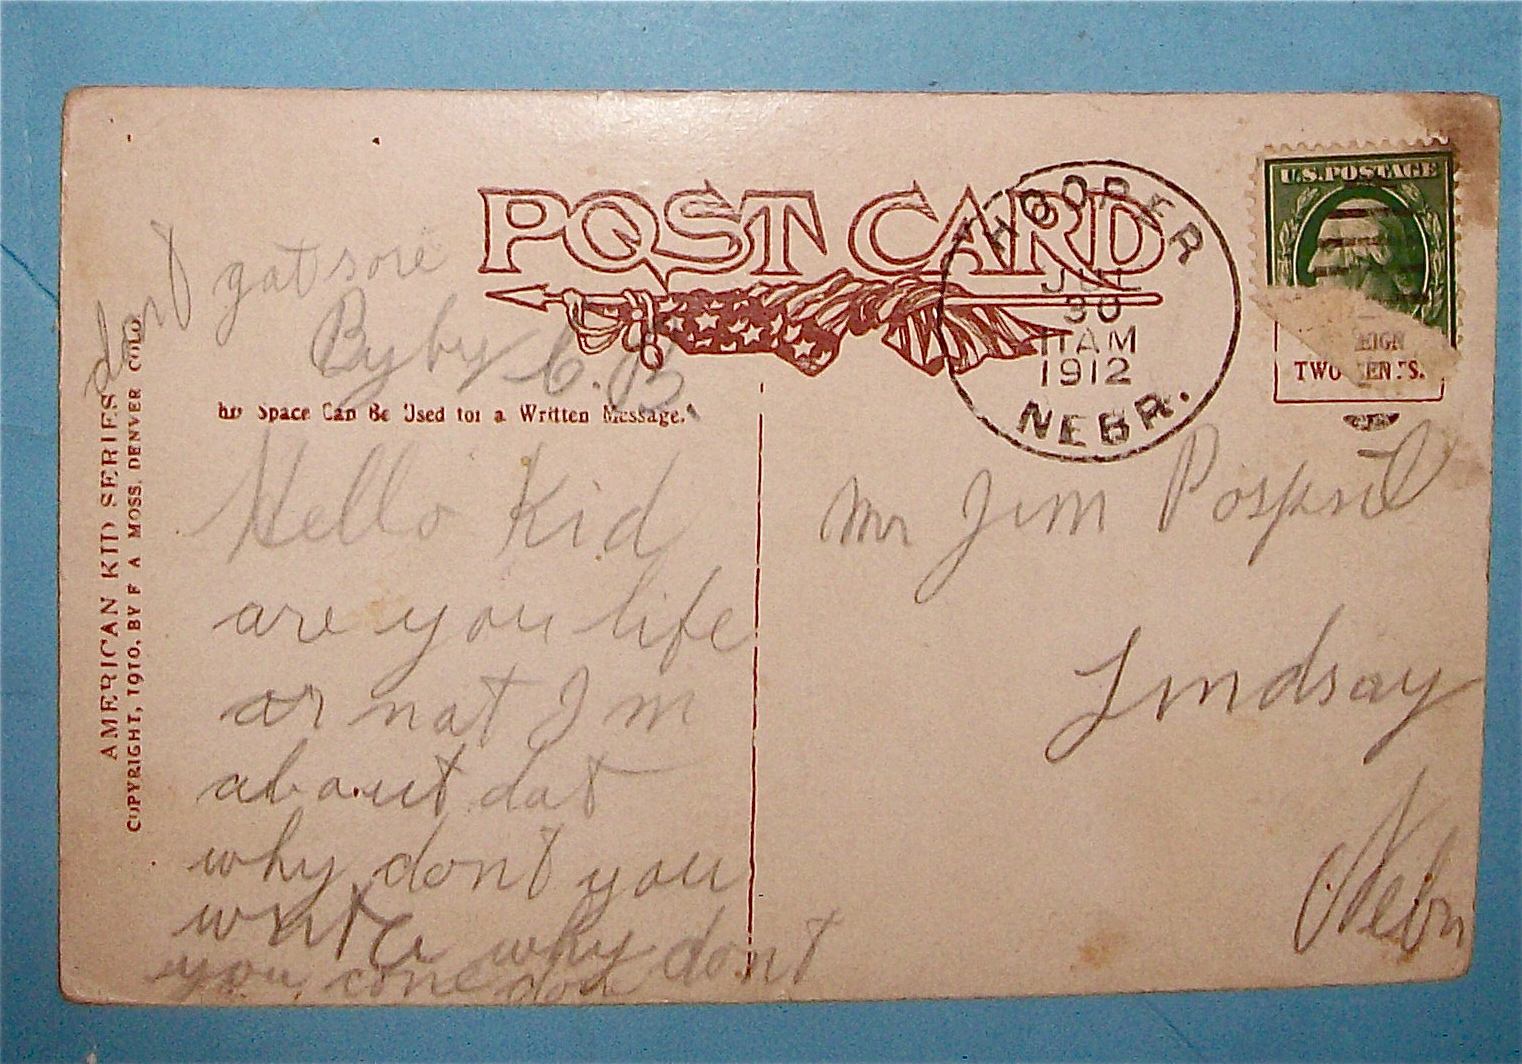 POST CARD
HOOPER
JUL
30
11 AM
1912
NEBR.
U.S. POSTAGE
EIGN
TWO CENTS.
AMERICAN KID SERIES
COPYRIGHT, 1910, BY F A MOSS, DENVER COLO
dont gat sore
By by C. B.
his Space Can Be Used for a Written Message.
Hello Kid
are you life
ar nat I m
about dat
why dont you
write why dont
you come
Mr Jim Pospisil
Lindsay
Nebr